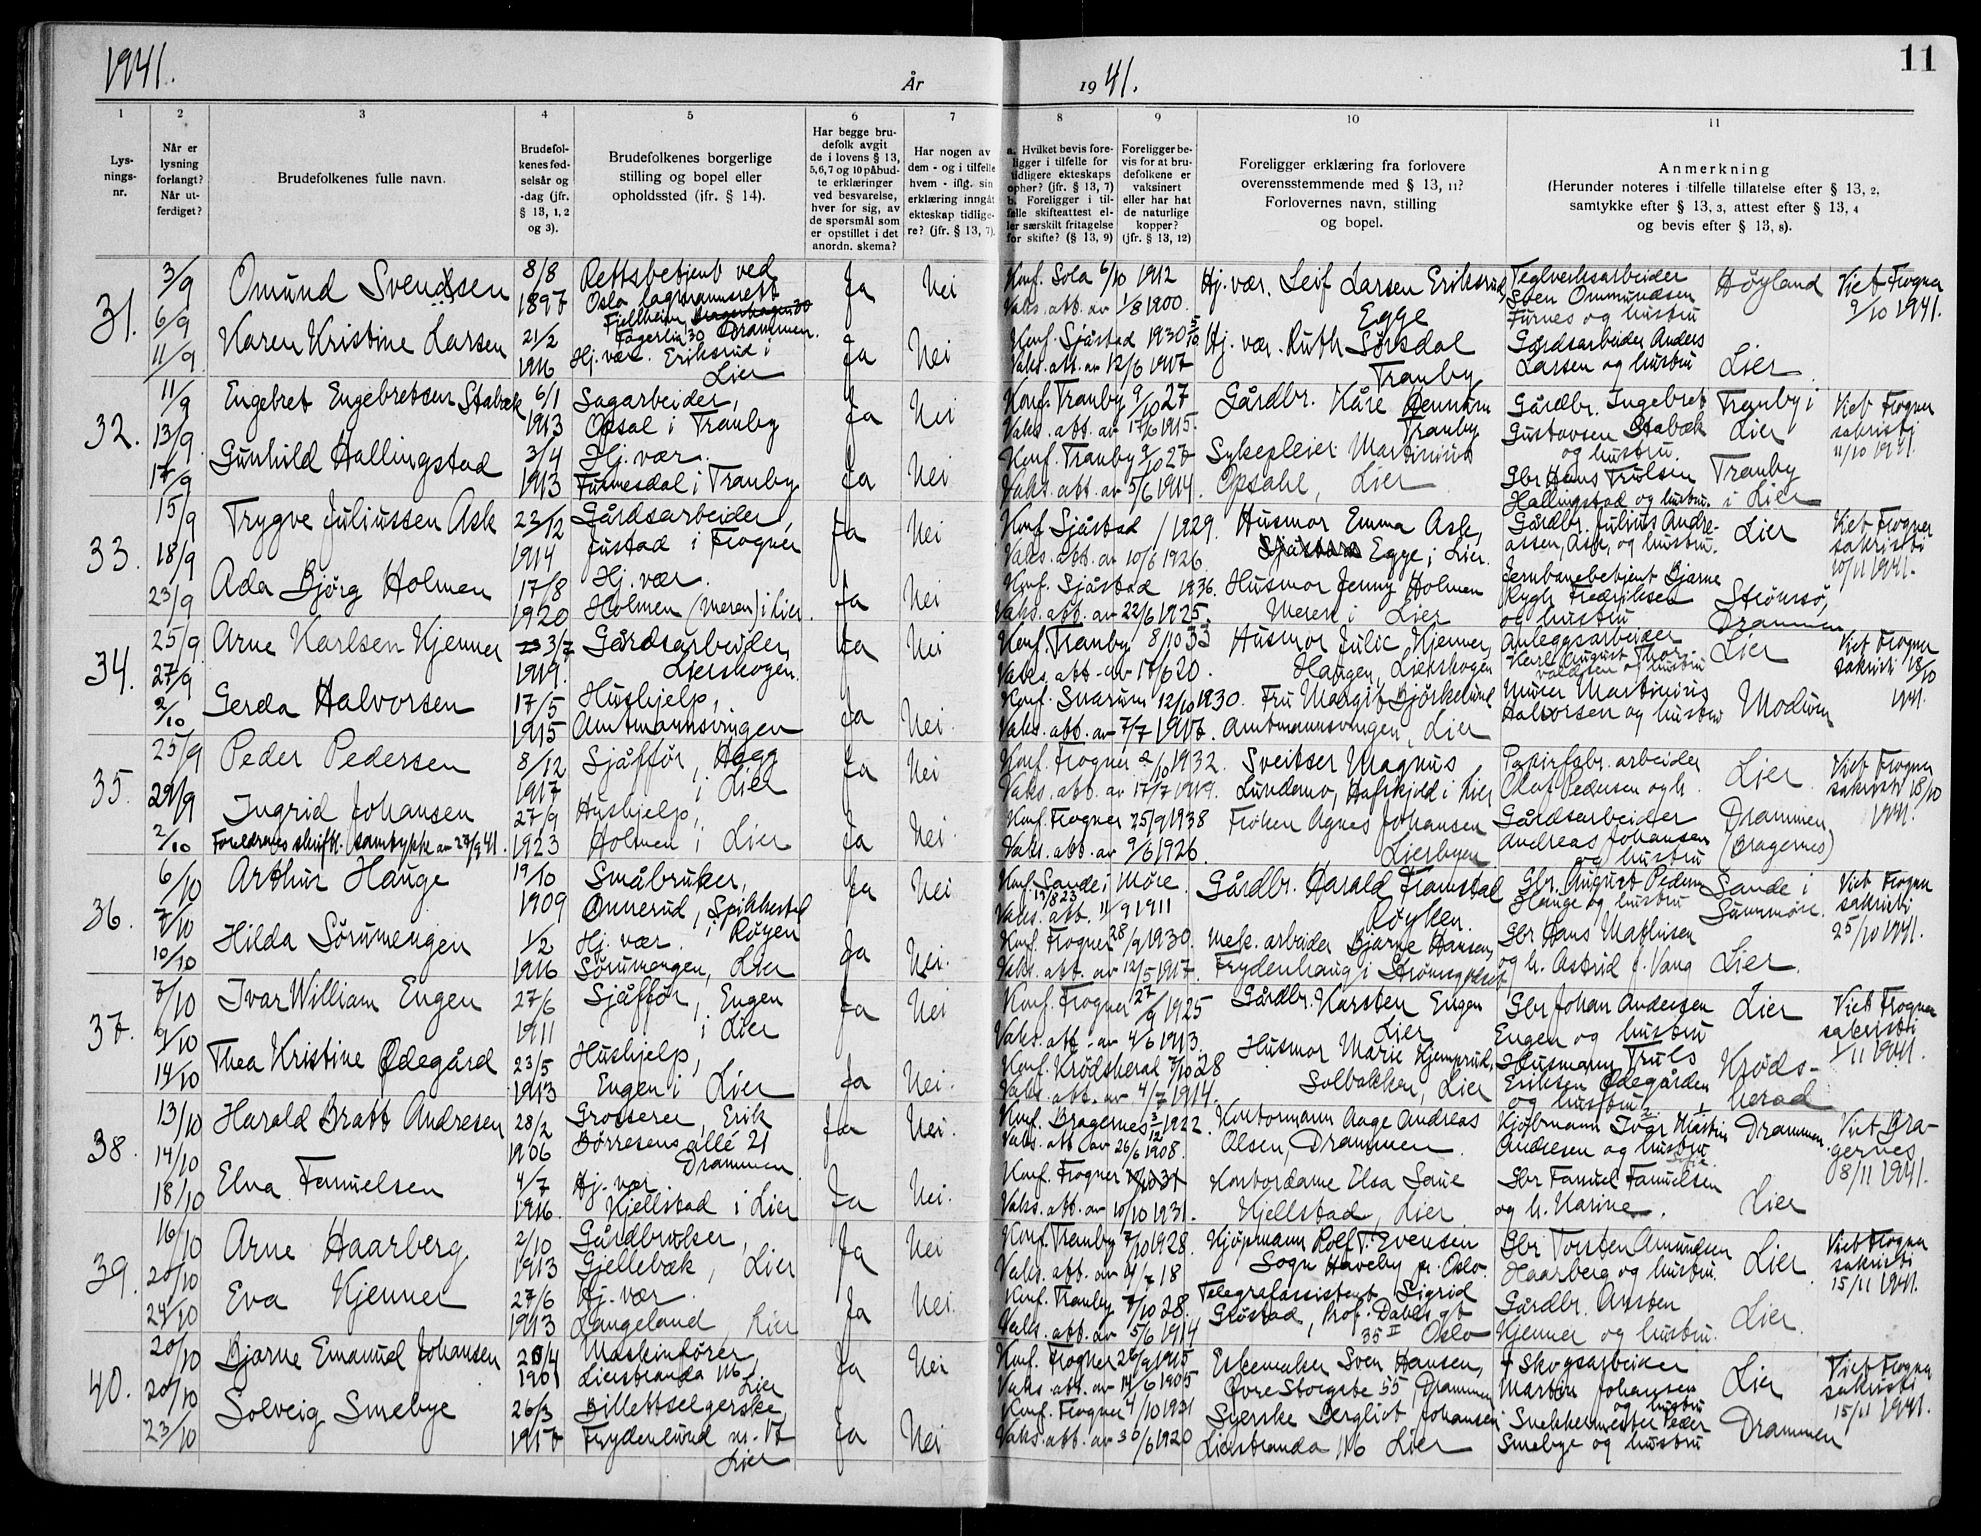 1941.
År
1941.
11
1
2
3
4
5
6
7
8
9
10
11
Lys-
nings-
nr.
Når er
lysning
forlangt?
Når ut-
ferdiget?
Brudefolkenes fulle navn.
Brudefol-
kenes fød-
selsår og
-dag (jfr.
§ 13, 1, 2
og 3).
Brudefolkenes borgerlige
stilling og bopel eller
opholdssted (jfr. § 14).
Har begge bru-
defolk avgit
de i lovens § 13,
5,6,7 og 10 påbud-
te erklæringer
ved besvarelse,
hver for sig, av
de spørsmål som
er opstillet i det
anordn. skema?
Har nogen av
dem - og i tilfelle
hvem - iflg. sin
erklæring inngåt
ekteskap tidlige-
re? (jfr. § 13, 7).
a. Hvilket bevis fore-
ligger i tilfelle for
tidligere ekteskaps
ophør? (jfr. § 13, 7)
b. Foreligger i til-
felle skifteattest el-
ler særskilt fritagelse
for skifte? (§ 13, 9)
Foreligger be-
vis for at bru-
defolkene er
vaksinert
eller har hat
de naturlige
kopper?
(jfr. § 13, 12)
Foreligger erklæring fra forlovere
overensstemmende med § 13, 11?
Forlovernes navn, stilling
og bopel.
Anmerkning
(Herunder noteres i tilfelle tillatelse efter § 13, 2,
samtykke efter § 13, 3, attest efter § 13, 4
og bevis efter § 13, 8).
31.
3/9
6/9
11/9
Omund Svendsen
8/8
1897
Rettsbetjent ved
Oslo lagmannsrett
Fjellheim
Fagerlia 30 Drammen.
Ja
Nei
Konf. Sola 6/10 1912
Vaks. att. av 1/8 1900.
Hj. vær. Leif Larsen Eriksrud,
Egge
Teglverksarbeider
Sven Ommundsen
Furnes og hustru
Høyland
Viet Frogner
9/10 1941.
Karen Kristine Larsen
21/2
1916
Hj. vær. Eriksrud i
Lier
Ja
Nei
Konf. Sjåstad 1930 5/10
Vaks. att. av 12/6 1917
Hj. vær. Ruth Sørsdal
Tranby
Gårdsarbeider Anders
Larsen og hustru
Lier
32.
11/9
13/9
17/9
Engebret Engebretsen Stabæk
6/1
1913
Sagarbeider,
Opsal i Tranby
Ja
Nei
Konf. Tranby 9/10 27
Vaks. att. av 17/6 1915.
Gårdbr. Kåre Gunnerm
Tranby
Gårdbr. Ingebret
Gustavsen Stabæk
og hustru.
Tranby i
Lier
Viet Frogner
sakristi
11/10 1941.
Gunhild Hallingstad
3/4
1913
Hj. vær.
Furnesdal i Tranby
Ja
Nei
Konf. Tranby 9/10 27
Vaks. att. av 5/6 1914.
Sykepleier Martinius
Opsahl, Lier
Gbr Hans Trulsen
Hallingstad og hustru.
Tranby
i Lier
33.
15/9
18/9
23/9
Trygve Juliussen Ask
22/12
1914
Gårdsarbeider,
Justad i Frogner
Ja
Nei
Konf. Sjåstad / 1929.
Vaks. att. av 10/6 1926
Husmor Emma Ask,
Egge i Lier.
Gårdbr. Julius Andre-
assen, Ask, og hustru.
Lier
Viet Frogner
sakristi
10/11 1941.
Ada Bjørg Holmen
17/8
1920
Hj. vær.
Holmen (Meren) i Lier.
Ja
Nei
Konf. Sjåstad 1936.
Vaks. att. av 22/6 1925.
Husmor Jenny Holmen
Meren i Lier
Jernbanebetjent Bjarne
Rygh Fredriksen
og hustru
Strømsø,
Drammen
34.
25/9
27/9
2/10
Arne Karlsen Kjenner
3/7
1919.
Gårdsarbeider,
Lierskogen.
Ja
Nei
Konf. Tranby 8/10 33
Vaks. att. av 17/6 20.
Husmor Julie Kjenner,
Haugen, Lierskogen
Anleggsarbeider
Karl August Thor-
valdsen og hustru
Lier
Viet Frogner
sakristi 18/10
1941.
Gerda Halvorsen
17/5
1915
Hushjelp,
Amtmannsvingen
Ja
Nei.
Konf. Snarum 12/10 1930.
Vaks. att. av 7/7 1917.
Fru Margit Bjørkelund
Amtmannsvingen, Lier
Murer Martinius
Halvorsen og hustru
Modum
35.
25/9
29/9
2/10
Peder Pedersen
8/12
1917
Sjåffør, Hegg
i Lier
Ja
Nei
Konf. Frogner 2/10 1932.
Vaks. att. av 17/7 1919.
Sveitser Magnus
Lundemo, Hafskjold i Lier
Papirfabr. arbeider
Olaf Pedersen og h.
Lier.
Viet Frogner
sakristi 18/10
1941.
Ingrid Johansen
Foreldrenes skriftl. samtykke av 27/9 41.
27/9
1923
Hushjelp,
Holmen i Lier
Ja
Nei.
Konf. Frogner 25/9 1938
Vaks. att. av 9/6 1926.
Frøken Agnes Johansen
Lierbyen
Gårdsarbeider
Andreas Johansen
og hustru
Drammen
(Bragernes)
36.
6/10
7/10
10/10
Arthur Hauge
19/10
1909
Småbruker,
Ønnerud, Spikkestad
i Røyen
Ja
Nei
Konf. Sande i Møre.
19/8 23
Vaks. att. 11/9 1911
Gårdbr. Harald Framstad
Røyken.
Gbr. August Peders
Hauge og hustru
Sande i
Sunnmøre.
Viet Frogner
sakristi
25/10 1941.
Hilda Sørumengen
1/2
1916
Hj. vær.
Sørumengen, Lier
Ja
Nei.
Konf. Frogner 28/9 1930.
Vaks. att. av 12/5 1917.
Mek. arbeider Bjarne Hansen,
Frydenhaug i Strømsgodset
Gbr Hans Mathisen
og h. Astrid f. Vang
Lier.
37.
7/10
9/10
14/10
Ivar William Engen
27/6
1911
Sjåffør, Engen
i Lier
Ja
Nei
Konf. Frogner 27/9 1925
Vaks. att. av 4/6 1913.
Gårdbr. Karsten Engen
Lier
Gbr Johan Andersen
Engen og hustru
Lier
Viet Frogner
sakristi
1/11 1941.
Thea Kristine Ødegård
23/5
1913
Hushjelp,
Engen i Lier
Ja
Nei.
Konf. Krødsherad 7/10 28
Vaks. att. av 4/7 1914.
Husmor Marie Kjemprud,
Solbakken, Lier
Husmann Truls
Eriksen Ødegården
og hustru
Krøds-
herad
38.
13/10
14/10
18/10
Harald Bratt Andresen
28/2
1906
Grosserer, Erik
Børresens allé 21
Drammen
Ja
Nei.
Konf. Bragernes 3/12 1922.
Vaks. att. av 26/6 1908.
Kontormann Aage Andreas
Olsen, Drammen
Kjøbmann Ivar Martin
Andresen og hustru
Drammen.
Viet Bra-
gernes
08/11 1941.
Elna Famuelsen
4/7
1916.
Hj. vær
Kjellstad i Lier
Ja
Nei.
Konf. Frogner
Vaks. att. av 10/10 1931.
Kontordame Elsa Saue
Kjellstad, Lier
Gbr Famuel Famuelsen
og h. Karine.
Lier
39.
16/10
20/10
24/10
Arne Haarberg
2/10
1913
Gårdbruker,
Gjellebæk, Lier
Ja
Nei
Konf. Tranby 7/10 1928.
Vaks. att. av 4/7 18
Kjøpmann Rolf T. Evensen
Sogn Haveby pr. Oslo.
Gbr Torsten Amundsen
Haarberg og hustru.
Lier
Viet Frogner
sakristi
15/11 1941.
Eva Kjenner
27/6
1913
Hj. vær.
Langeland, Lier
Ja
Nei.
Konf. Tranby 7/10 28.
Vaks. att. av 5/6 1914
Telegrafassistent Sigrid
Grøstad, Prof. Dahls gt
35 II Oslo
Gårdbr. Arnsten
Kjenner og hustru.
Lier.
40.
20/10
20/10
23/10
Bjarne Emanuel Johansen
20/4
1901
Maskinfører,
Lierstranda 116
Lier
Ja
Nei
Konf. Frogner 26/9 1915
Vaks. att. av 14/6 1905
Eskemaker Sven Hansen,
Øvre Storgate 55 Drammen
+ Skogsarbeider
Martin Johansen
og hustru
Lier
Viet Frogner
sakristi
15/11 1941.
Solveig Smebye
26/3
1917
Billettselgerske,
Frydenlund nr. 17
Lier
Ja
Nei
Konf. Frogner 4/10 1931
Vaks. att. av 30/6 1920
Syerske Bergliot Johansen
Lierstranda 116 Lier
Snekkermester Peder
Smebye og hustru
Drammen